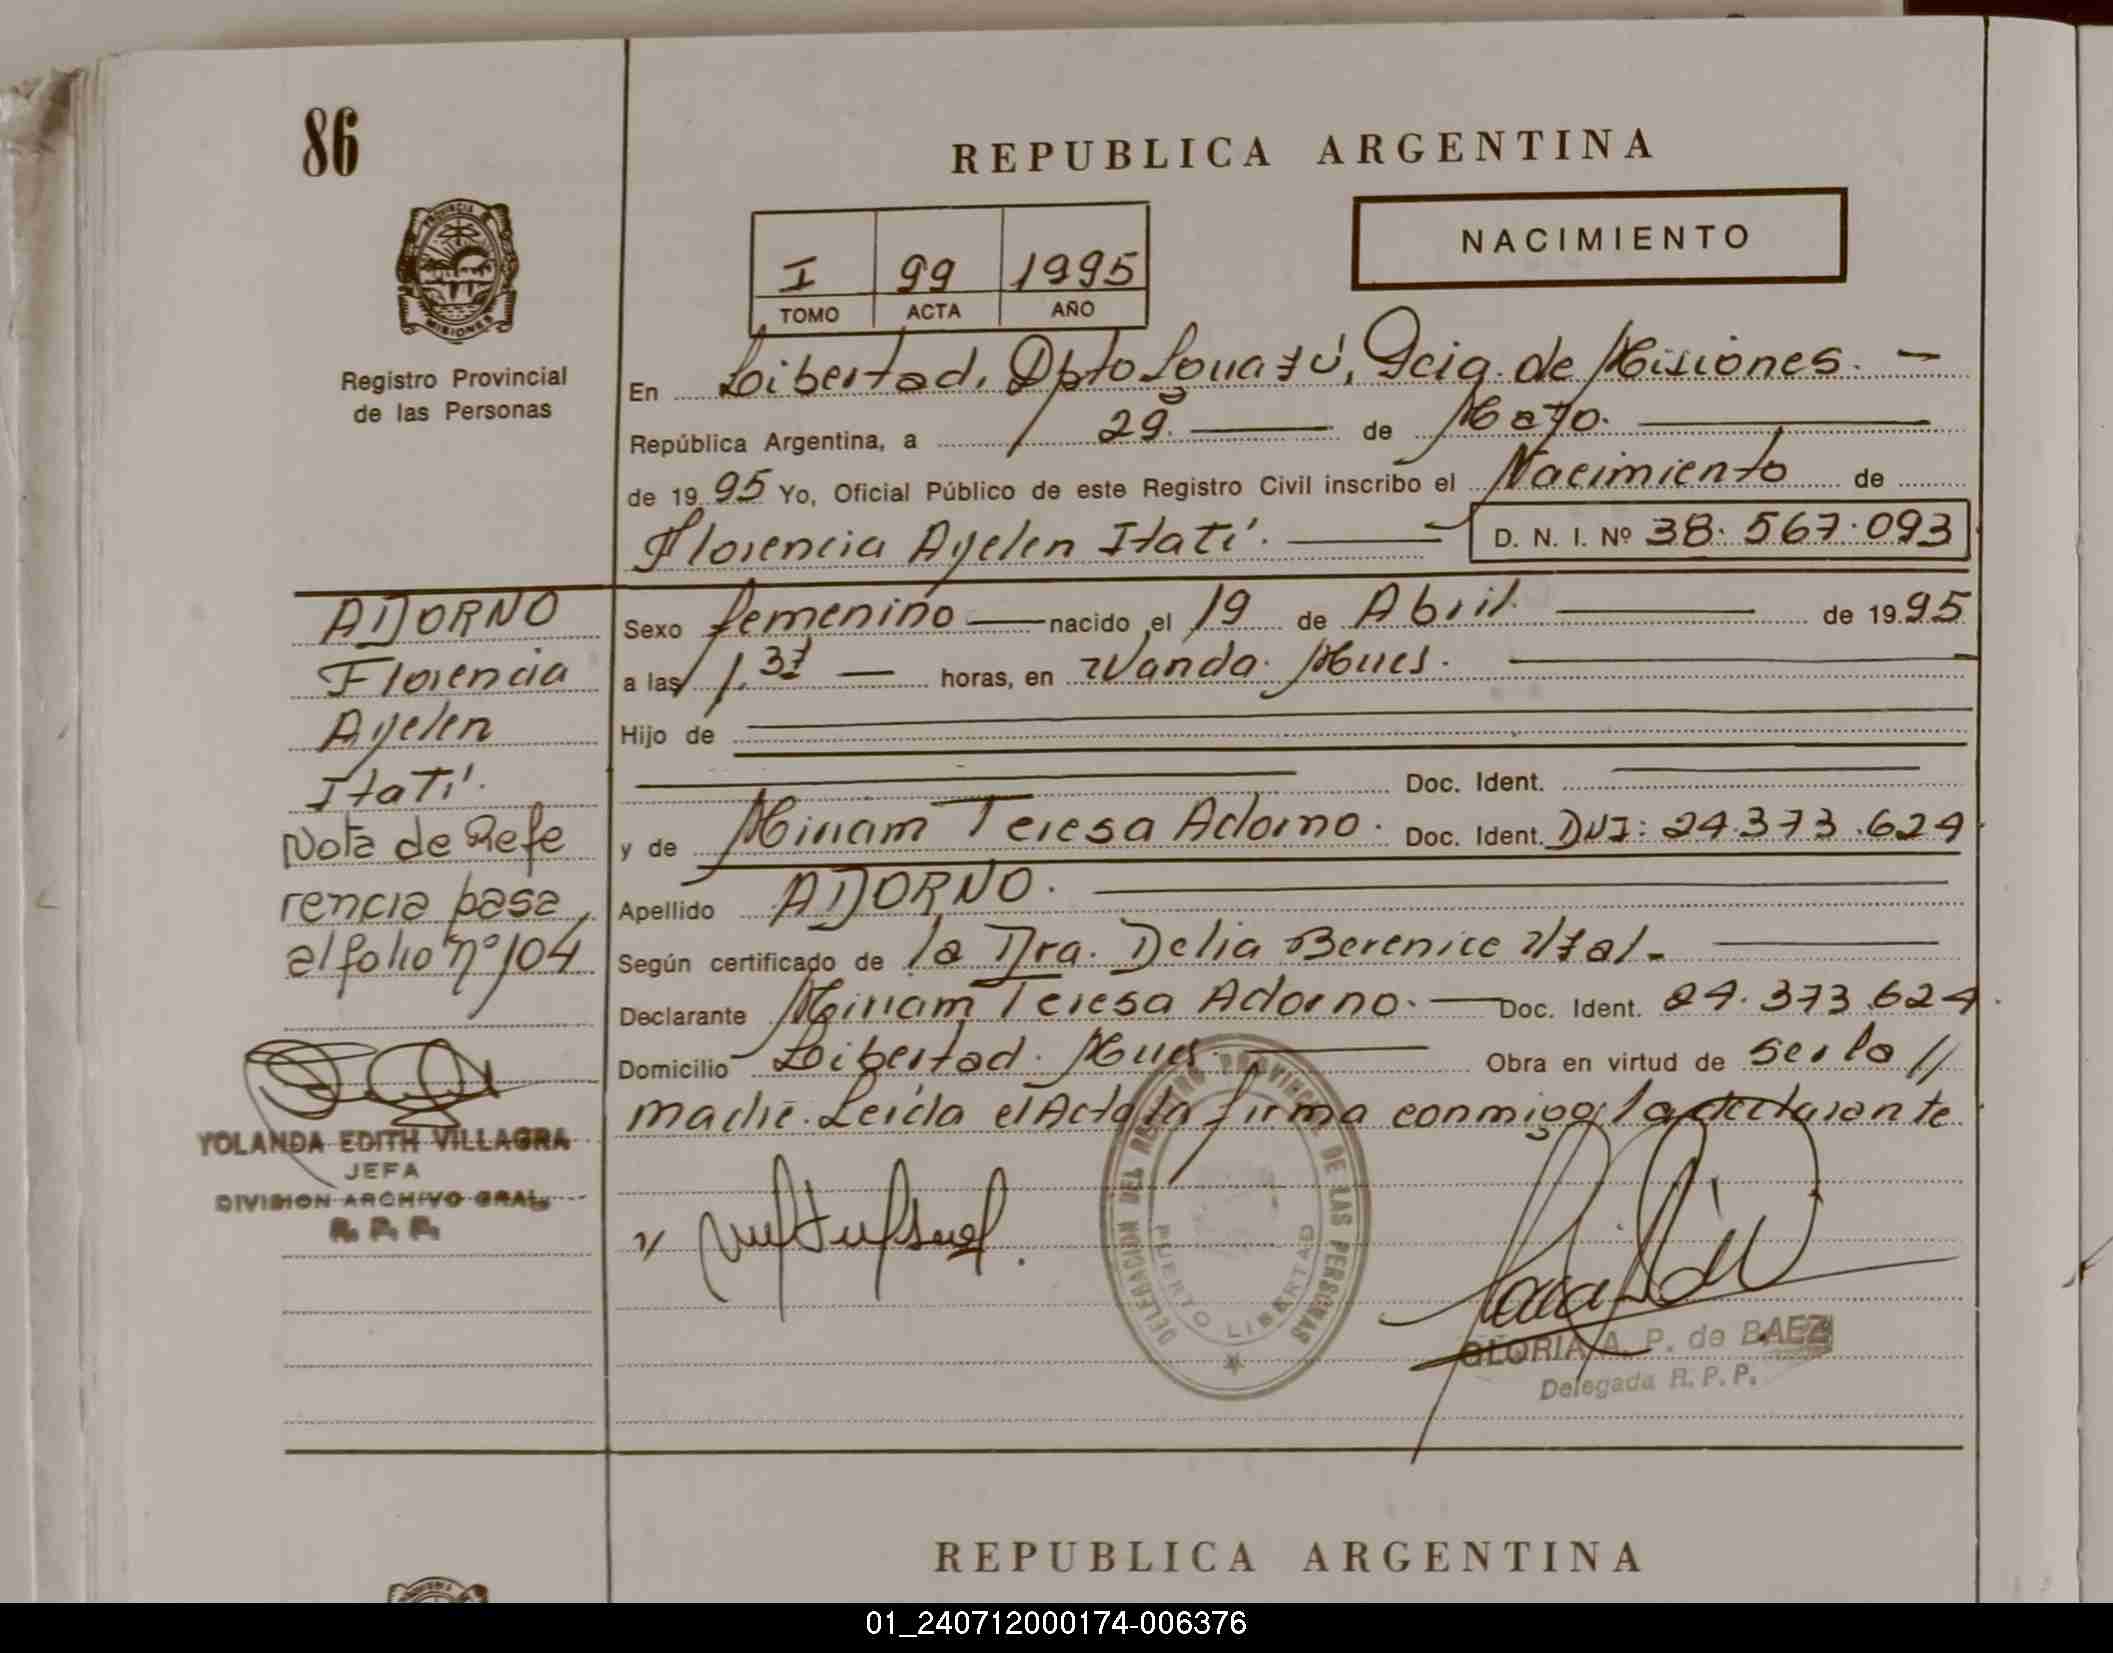 86
REPUBLICA ARGENTINA
PROVINCIA DE
MISIONES
Registro Provincial
de las Personas
I 99 1995
TOMO ACTA AÑO
NACIMIENTO
En Libertad, Dpto Iguazú, Pcia. de Misiones. —
República Argentina, a 29. — de Mayo. —
de 1995 Yo, Oficial Público de este Registro Civil inscribo el Nacimiento de
Florencia Ayelen Itatí. — D. N. I. Nº 38.567.093
ADORNO
Florencia
Ayelen
Itatí.
Nota de Refe
rencia pasa
al folio nº 104
YOLANDA EDITH VILLAGRA
JEFA
DIVISION ARCHIVO GRAL.
R. P. P.
Sexo femenino — nacido el 19 de Abril. — de 1995
a las 1.37 — horas, en Wanda. Mnes. —
Hijo de
Doc. Ident.
y de Miriam Teresa Adorno. Doc. Ident. DNI: 24.373.624
Apellido ADORNO. —
Según certificado de la Dra. Delia Berenice Uzal. —
Declarante Miriam Teresa Adorno. — Doc. Ident. 24.373.624.
Domicilio Libertad. Mnes. — Obra en virtud de ser la //
madre. Leída el Acta la firma conmigo la declarante
DELEGACIÓN DEL REGISTRO PROVINCIAL DE LAS PERSONAS
PUERTO LIBERTAD
GLORIA A. P. de BAEZ
Delegada R. P. P.
REPUBLICA ARGENTINA
01_240712000174-006376